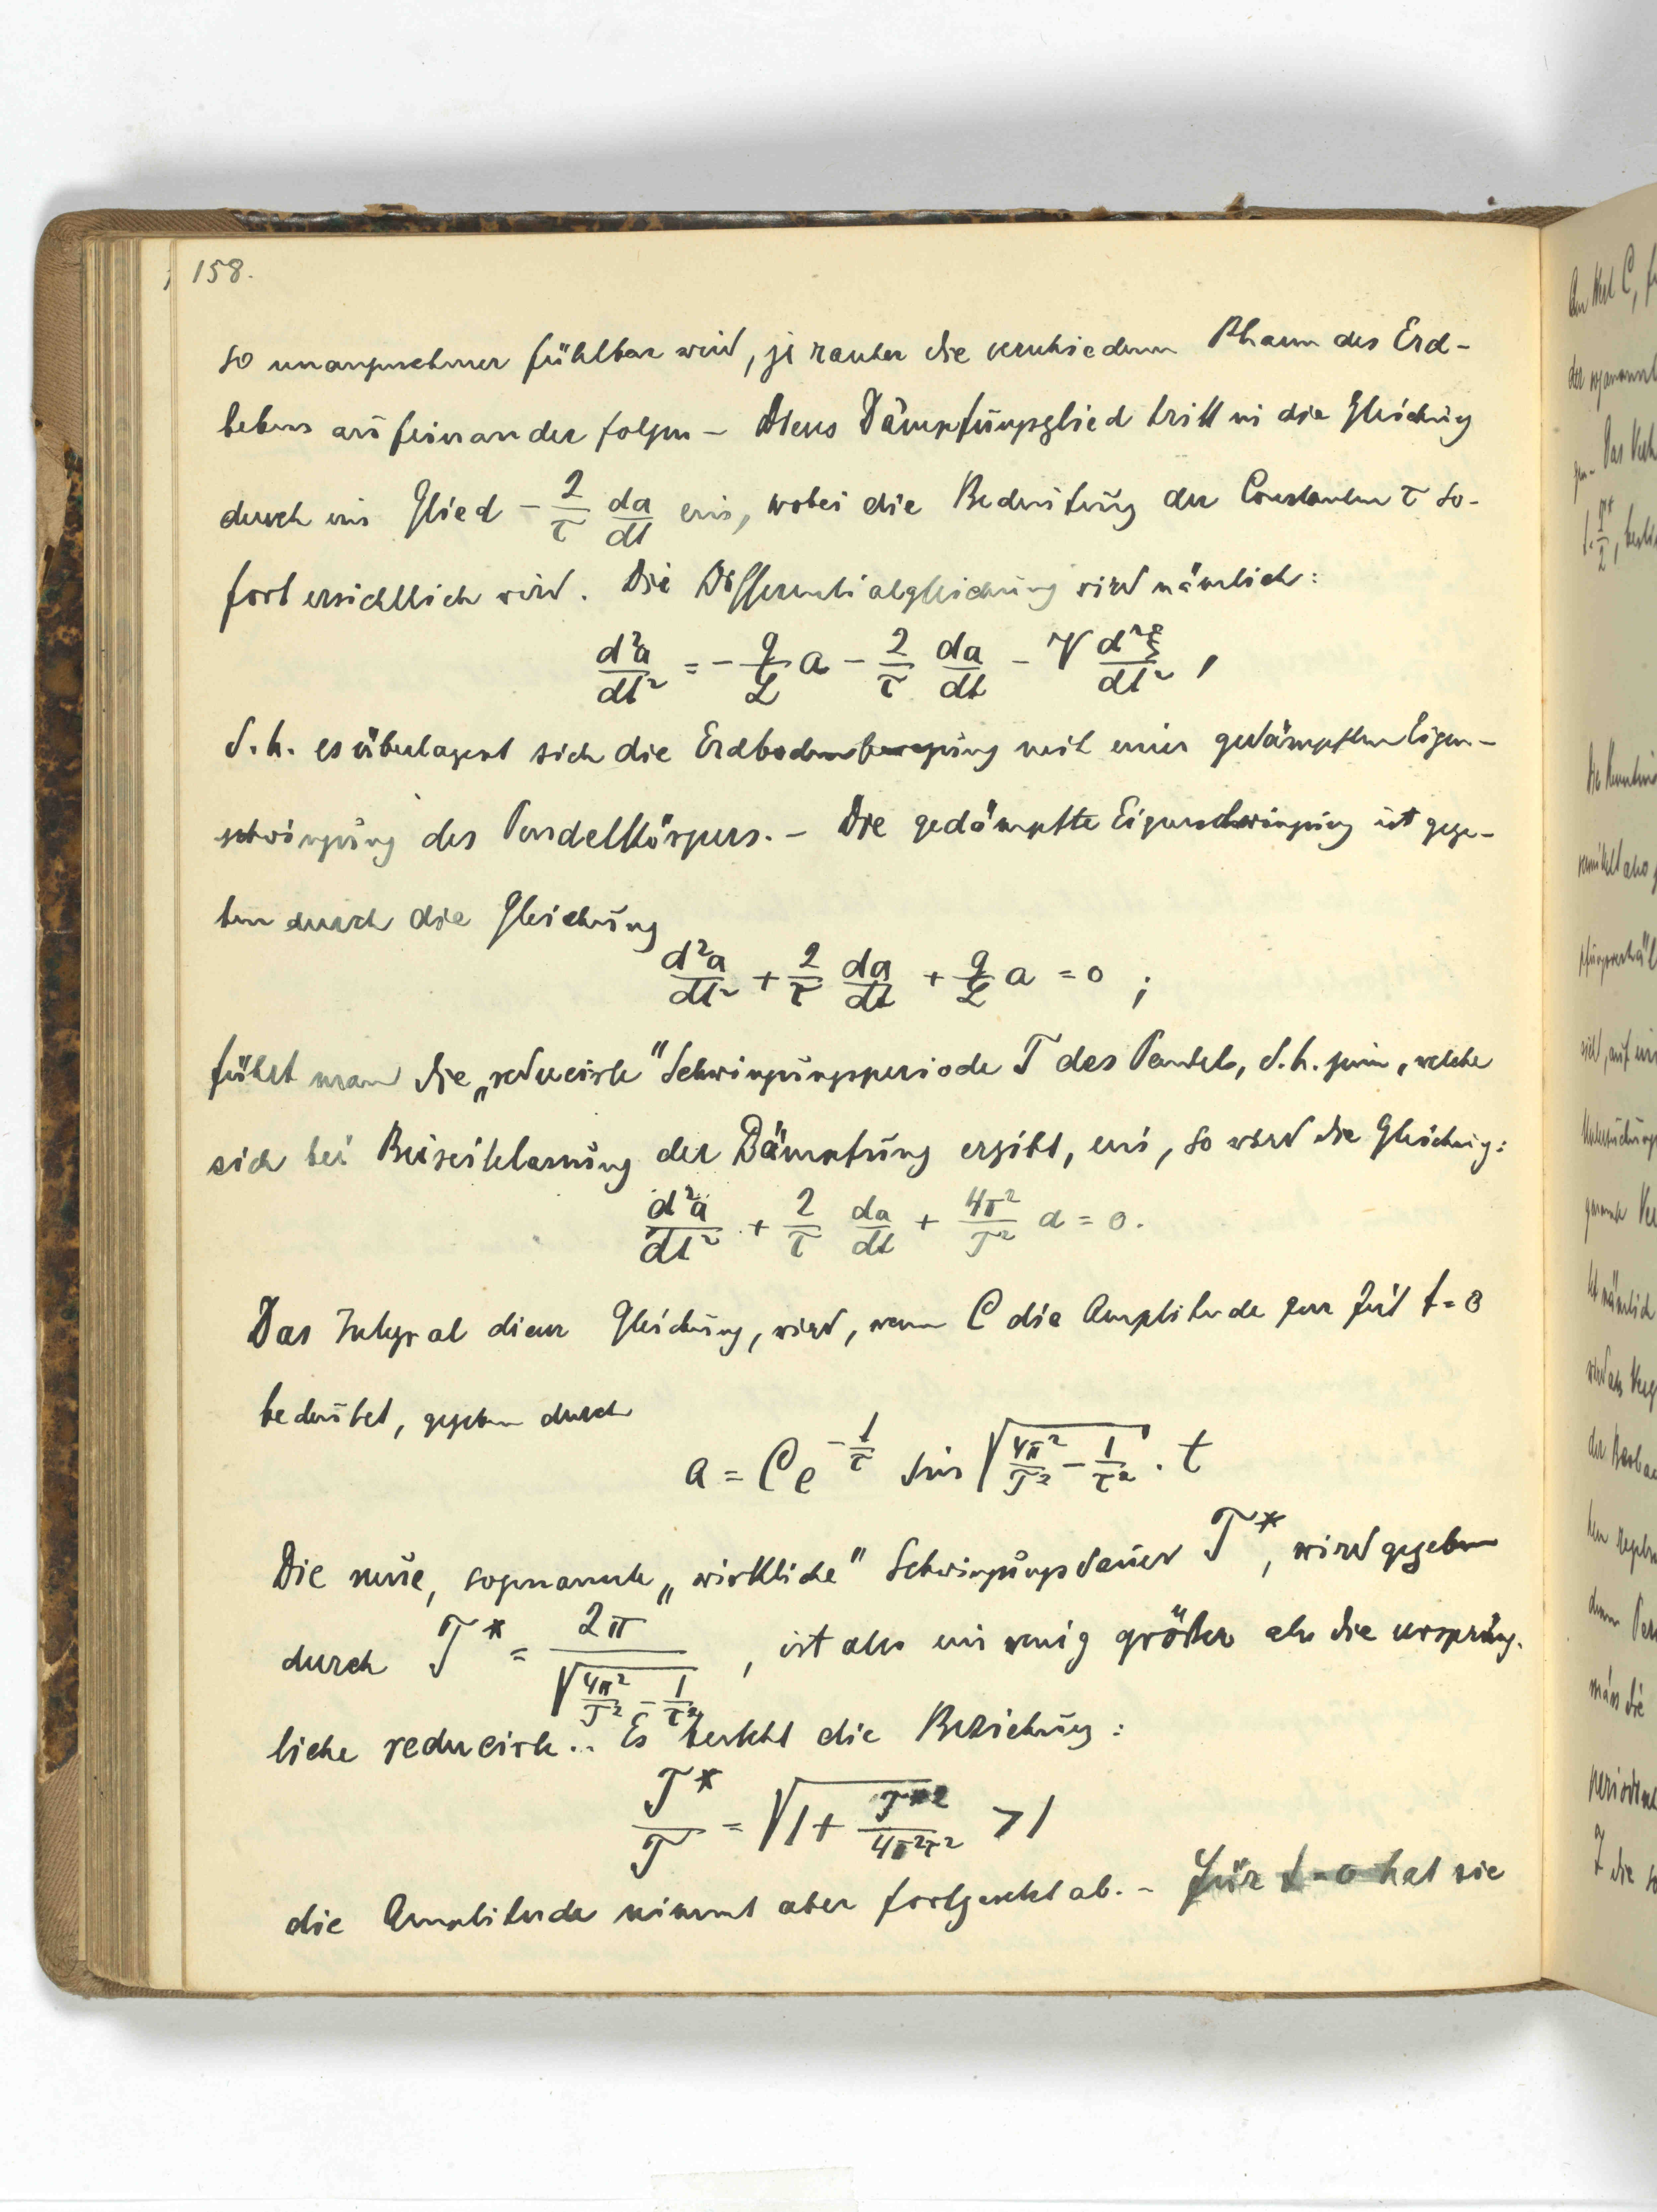 158.
so unangenehmer fühlbar wird, je rascher die verschiedenen Phasen des Erd-
bebens aufeinander folgen – Dieses Dämpfungsglied tritt in die Gleichung
durch ein Glied - \frac{2}{τ} \frac{da}{dt} ein, wobei die Bedeutung der Constanten τ so-
fort ersichtlich wird. Die Differentialgleichung wird nämlich:
\frac{d²a}{dt²} = - \frac{g}{L} a - \frac{2}{τ} \frac{da}{dt} - V \frac{d²ξ}{dt²} ,
d. h. es überlagert sich die Erdbodenbewegung mit einer gedämpften Eigen-
schwingung des Pendelkörpers. – Die gedämpfte Eigenschwingung ist gege-
ben durch die Gleichung
\frac{d²a}{dt²} + \frac{2}{τ} \frac{da}{dt} + \frac{g}{L} a = 0 ;
führt man die „reducirte" Schwingungsperiode T des Pendels, d. h. jene, welche
sich bei Beiseitelassung der Dämpfung ergibt, ein, so wird die Gleichung:
\frac{d²a}{dt²} + \frac{2}{τ} \frac{da}{dt} + \frac{4π²}{T²} a = 0.
Das Integral dieser Gleichung, wird, wenn C die Amplitude zur Zeit t = 0
bedeutet, gegeben durch
a = C e^{-\frac{t}{τ}} sin \sqrt{\frac{4π²}{T²} - \frac{1}{τ²}} . t
Die neue, sogenannte „wirkliche" Schwingungsdauer T*, wird gegeben
durch T* = \frac{2π}{\sqrt{\frac{4π²}{T²} - \frac{1}{τ²}}} , ist also ein wenig größer als die ursprüng-
liche reducirte.. Es besteht die Beziehung:
\frac{T*}{T} = \sqrt{1 + \frac{T*²}{4π²τ²}} > 1
die Amplitude nimmt aber fortgesetzt ab. – Für t = 0 hat sie